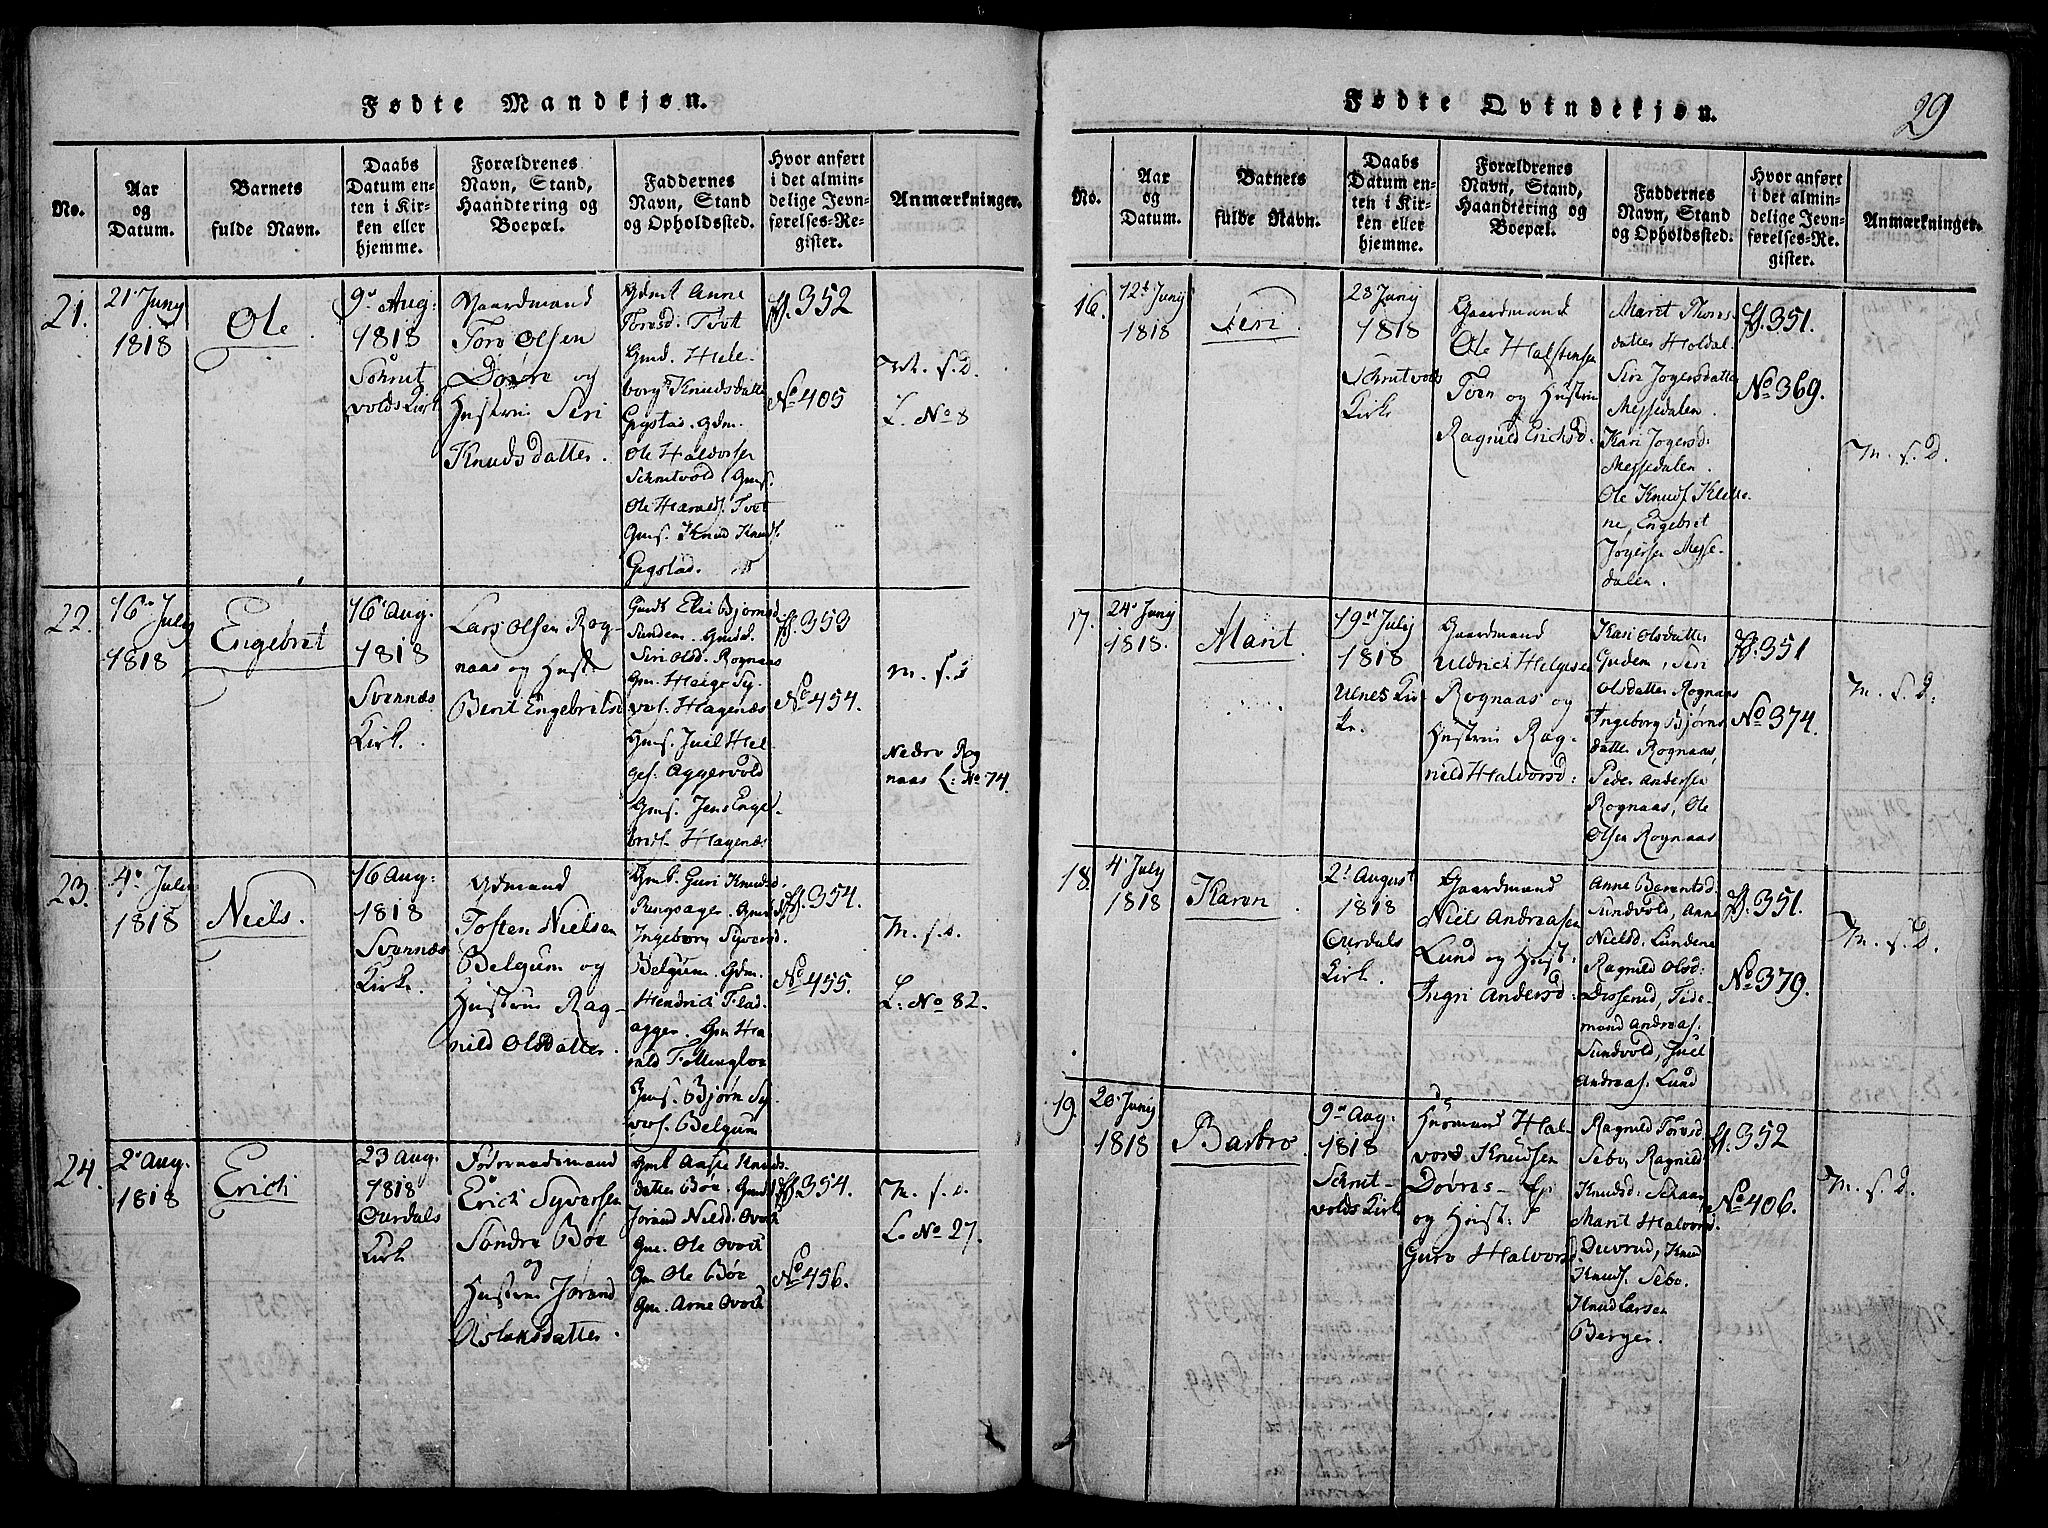 Fødte Mandkjøn.
No.
Aar
og
Datum.
Barnets
fulde Navn.
Daabs
Datum en-
ten i Kir-
ken eller
hjemme.
Forældrenes
Navn, Stand,
Haandtering og
Boepæl.
Faddernes
Navn, Stand
og Opholdssted.
Hvor anført
i det almin-
delige Jevn-
førelses-Re-
gister.
Anmærkninger.
21.
21. Juny
1818
Ole
9de Aug:
1818
Schrut
volds Kirk
Gaardmand
Tore Olsen
Døvre og
Hustrue Siri
Knudsdatter.
Gdmt Anne
Torosd. Tvet
Gmd. Hele-
borg Knudsdatter
Gigstad. Gdm.
Ole Halvorsen
Schrutvold. Gms.
Ole Haralds. Tvet
Gms. Knud Knuds.
Gigstad.
ff. 352
No 405
M. s. D.
L. No 8
22.
16. July
1818
Engebret
16. Aug.
1818
Svennæs
Kirk.
Lars Olsen Rog-
naas og Hustr
Berit Engebritsd
Gmdt Elie Bjørnsd.
Sundem. Gmdd.
Siri Olsd. Rognaas
Gm. Helge Sy-
vers. Hagenæs
Gms. Juel Hel-
ges. Aggervold
Gms. Jens Enge-
brets. Hagenæs
ff. 353
No 454.
M. s. s
Nedre Rog
naas L: No 74.
23.
4. July
1818
Niels.
16 Aug:
1818
Svennæs
Kirk.
Gdmand
Tosten Nielsen
Belgum og
Hustrue Rag-
nild Olsdatter.
Gmk. Guri Knudsd.
Ringsager. Gmdd
Ingeborg Syversd.
Belgum. Gdm.
Hendrich Flad-
agger. Gm Ha-
rald Follinglo
Gms. Bjørn Sy
vers. Belgum
ff. 354.
No 455.
M. s. s.
L: No 82.
24.
2. Aug.
1818
Erich
23 Aug.
1818
Ourdals
Kirk
Føderaadsmand
Erich Syversen
Søndre Bøe
og
Hustrue Jørand
Aslaksdatter.
Gmk Aase Knuds-
datter Bøe. Gmdd
Jørand Nielsd. Qvock
Gm. Ole Qvock
Gm Ole Bøe
Gm. Arne Qvock
ff. 354.
No 456.
M. s. s.
L. No 27.
Fødte Qvindekjøn.
29
No.
Aar
og
Datum.
Barnets
fulde Navn.
Daabs
Datum en-
ten i Kir-
ken eller
hjemme.
Forældrenes
Navn, Stand,
Haandtering og
Boepæl.
Faddernes
Navn, Stand
og Opholdssted.
Hvor anført
i det almin-
delige Jevn-
førelses-Re-
gister.
Anmærkninger.
16.
12t Junij
1818
Siri.
28 Junij
1818
Schrutvolds
Kirk
Gaardmand
Ole Halstensen
Tven og Hustrue
Ragnild Erichsd.
Marit Thores-
datter Holdal
Siri Jogersdatter
Messedalen.
Kari Jogersd:
Messedalen.
Ole Knuds. Klette-
ne, Engebret
Jøgersen Messe-
dalen.
ff. 351.
No 369.
M. s. D.
17.
24. Juny
1818.
Marit
19de Julij
1818
Ulnes Kir
ke.
Gaardmand
Uldrich Helgesen
Rognaas og
Hustrue Rag-
nild Halvorsd:
Kari Olsdatter
Gudem, Siri
Olsdatter Rognaas
Ingeborg Bjørns
datter Rognaas,
Peder Andersen
Rognaas, Ole
Olsen Rognaas
ff. 351
No 374.
M. s. D:
18.
4. July
1818
Karen
2. August
1818
Ourdals
Kirk.
Gaardmand
Niels Andreasen
Lund og Hust.
Ingri Andersd:
Anne Berentsd.
Sundvold, Anne
Nielsd: Lundene
Ragnild Olsd:
Disserud, Tide-
mand Andreas.
Sundvold, Juel
Andreas. Lund
ff. 351.
No 379.
M. s. D.
19.
20. Juny
1818
Barbro
9de Aug.
1818
Schrut-
volds Kirk
Huusmand Hal-
vord Knudsen
Døvres- Ej
og Hust:
Guro Halvorsd.
Ragnild Torosd
Sebo, Ragnild
Knudsd: Schaar
Marit Halvord.
Duvrud, Knud
Knuds. Sebo.
Knud Larsen
Berger.
ff. 352
No 406.
M. s. D.